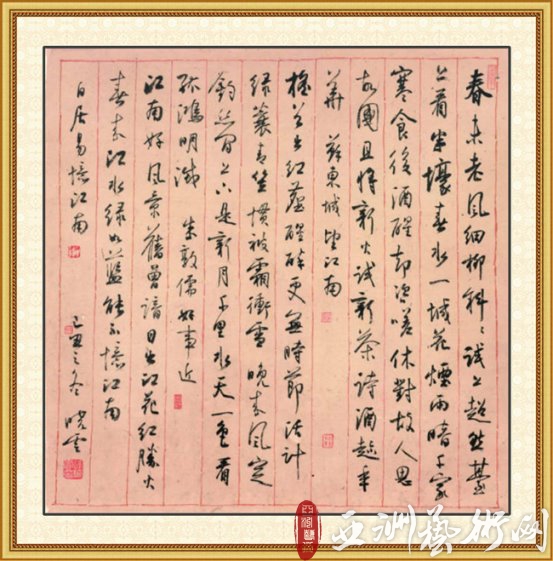 春未老風細柳斜〻試上超然臺
上看半壕春水一城花煙雨暗千家
寒食後酒醒却咨嗟休對故人思
故國且將新火試新茶詩酒趁年
華 蘇東坡望江南
搖首出紅塵醒醉更無時節活計
綠蓑青笠慣被霜衝雪晚來風定
釣絲閒上下是新月千里水天一色看
孤鴻明滅 朱敦儒好事近
江南好風景舊曾諳日出江花紅勝火
春來江水綠如藍能不憶江南
白居易憶江南 己丑之冬 曉雲
亚洲藝術网